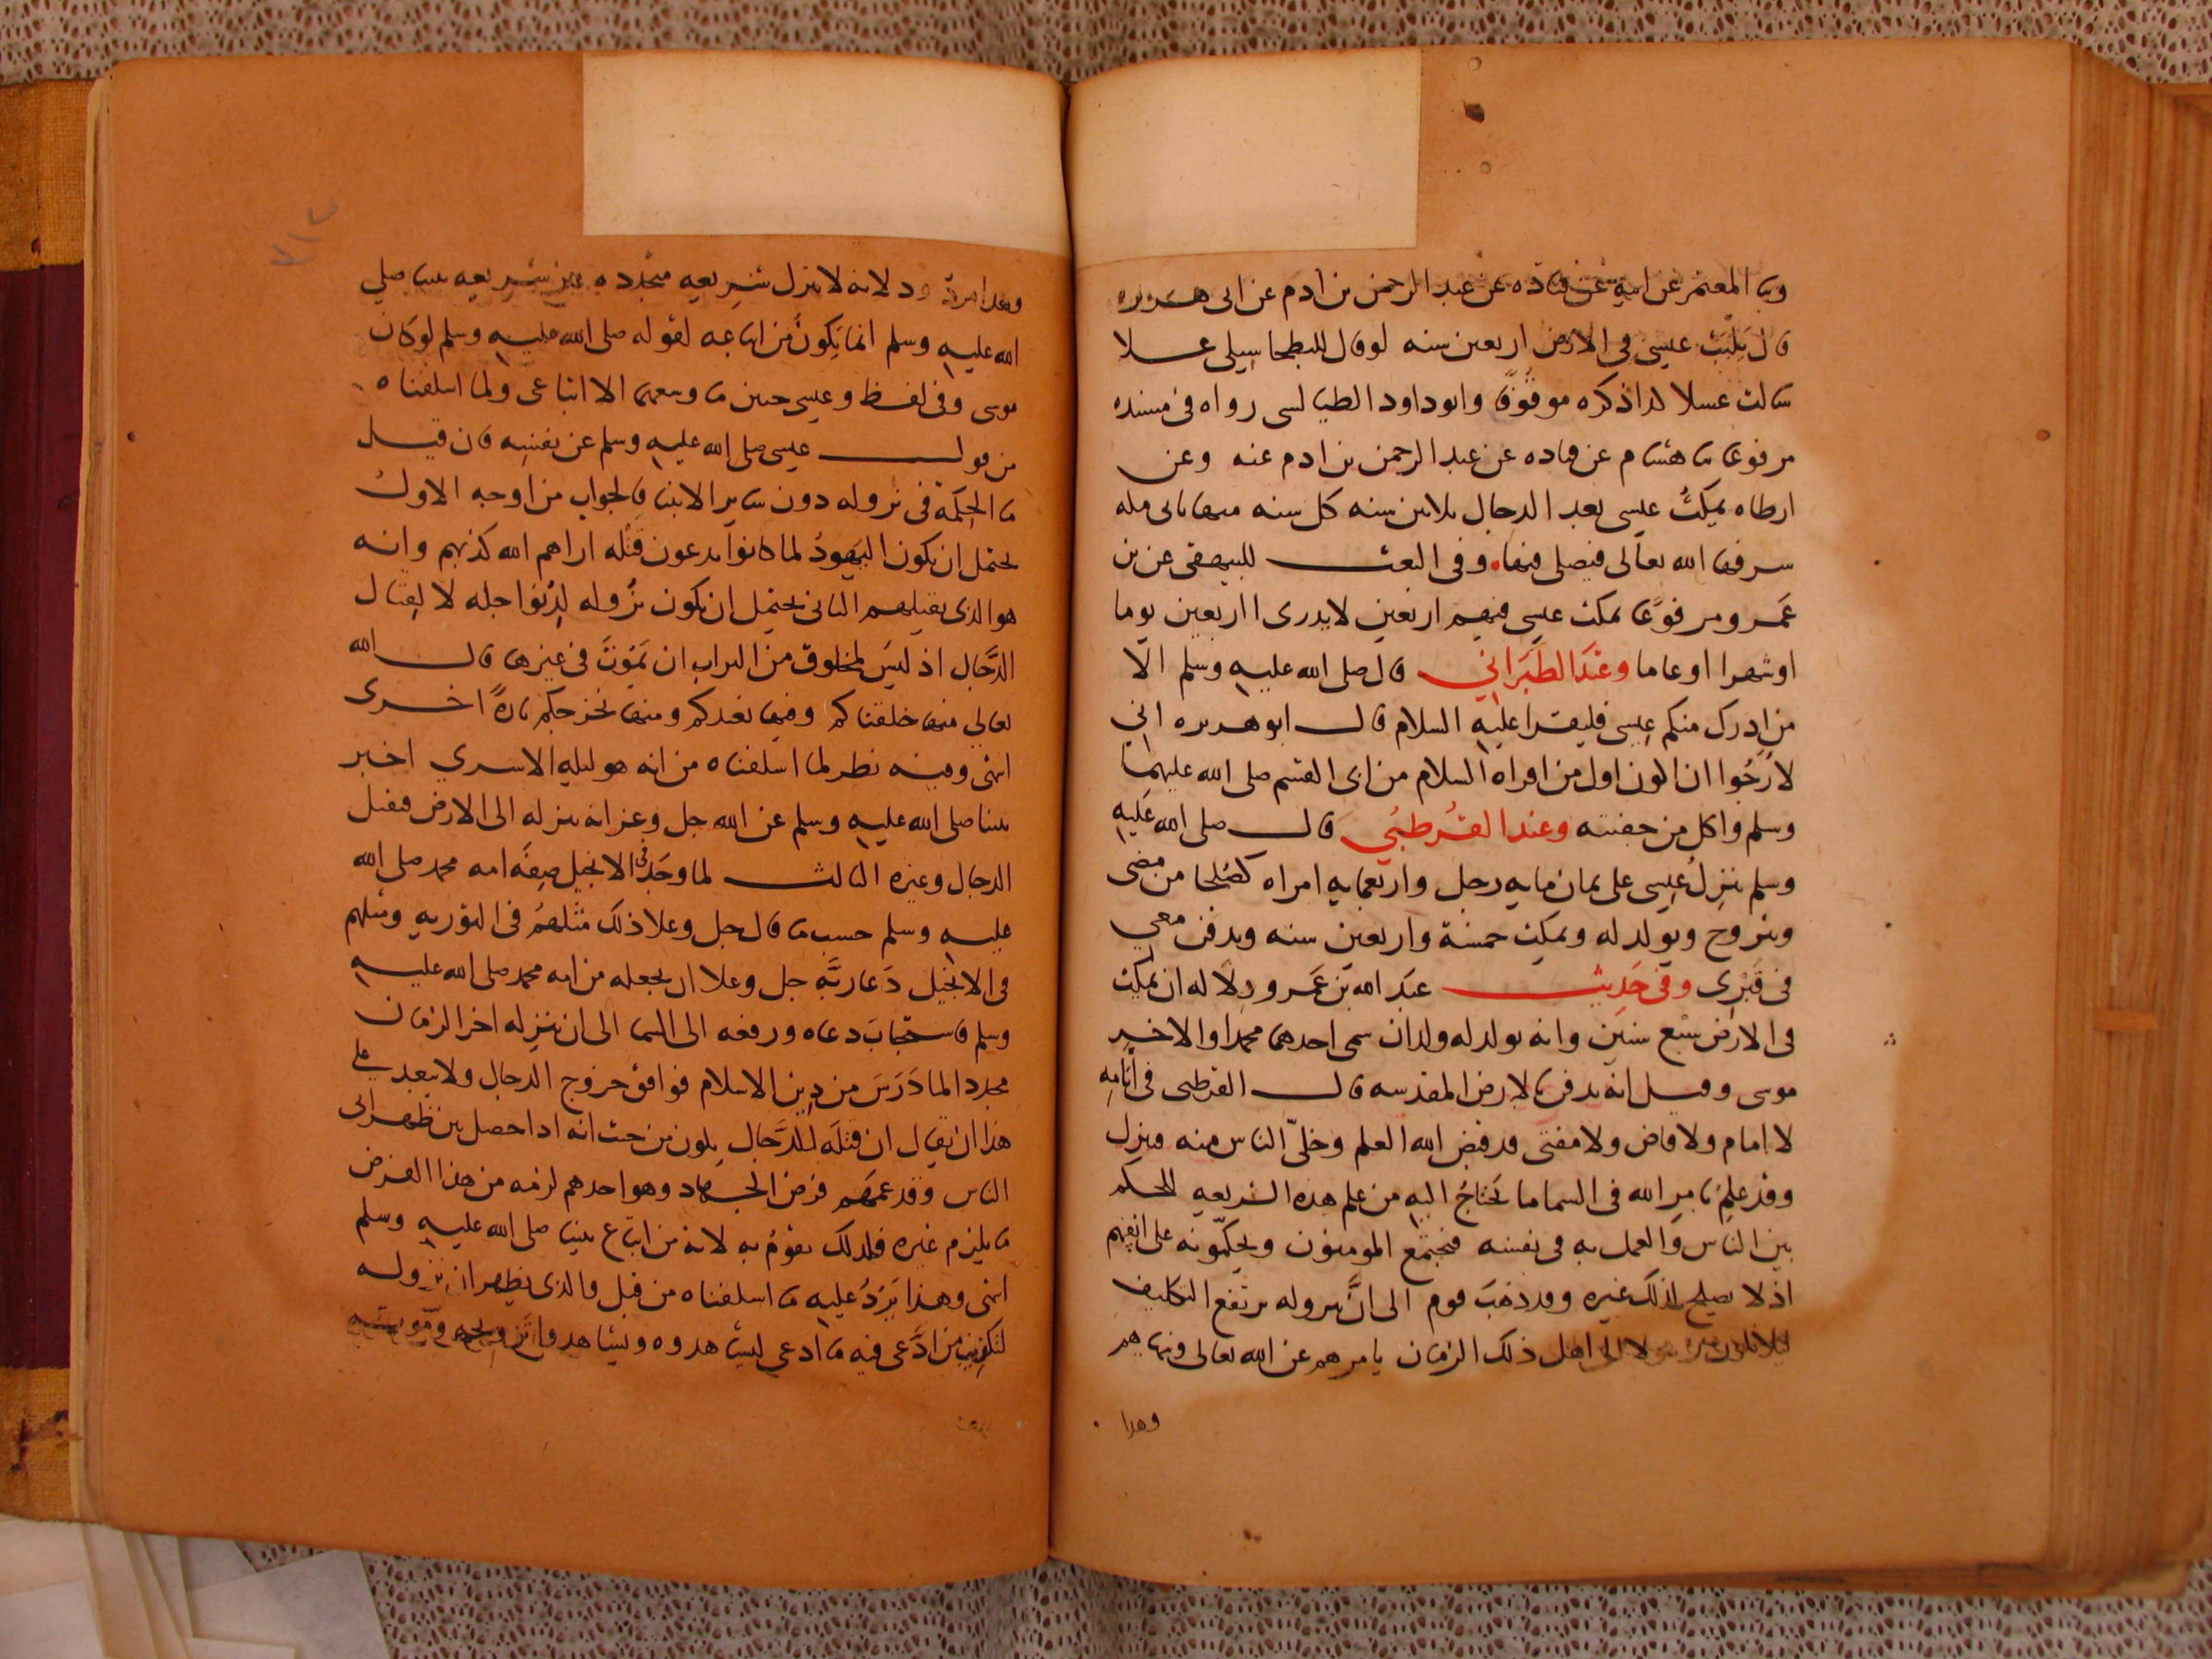 وثنا المعتمر عن ابيه عن قتاده عن عبد الرحمن بن ادم عن ابى هريره
قال يلبث عيسى فى الارض اربعين سنه لو قال للبطحا سيلى عسلا
سالت عسلا كذا ذكره موقوفا وابو داود الطيالسى رواه فى مسنده
مرفوعا ثنا هشام عن قتاده عن عبد الرحمن بن ادم عنه وعن
ارطاه يمكث عيسى بعد الدجال ثلاثين سنه كل سنه منها ياتى مكه
سرفها الله تعالى فيصلى فيها وفى البعث للبيهقى عن بن
عمرو مرفوعا يمكث عيسى فيهم اربعين لا يدرى ااربعين يوما
اوشهرا اوعاما وعند الطبراني قال صلى الله عليه وسلم الا
من ادرك منكم عيسى فليقرا عليه السلام قال ابو هريره اني
لارجوا ان اكون اول من اقراه السلام من ابى القسم صلى الله عليهما
وسلم واكل من جفنته وعند القرطبي قال صلى الله عليه
وسلم ينزل عيسى على ثمان مايه رجل واربعمايه امراه كصلحا من مضى
ويتزوج ويولد له ويمكث خمسة واربعين سنه ويدفن معي
فى قبرى وفى حديث عبد الله بن عمرو دلاله ان يمكث
فى الارض سبع سنين وانه يولد له ولدان سمى احدهما محمدا والاخير
موسى وقيل انه يدفن بالارض المقدسه قال القرطبى فى ايامه
لا امام ولا قاض ولا مفتى قد قبض الله العلم وخلى الناس منه فينزل
وقد علم بامر الله فى السما ما يحتاج اليه من علم هذه الشريعه للحكم
بين الناس والعمل به فى نفسه فيجتمع المومنون ويحكمونه على انفسهم
اذ لا يصلح لذلك غيره وقد ذهب قوم الى ان بنزوله يرتفع التكليف
ليلا يكون رسولا الى اهل ذلك الزمان يامرهم عن الله تعالى وينهاهم
وهذا
وهذا مردود لانه لا ينزل بشريعه متجدده غير شريعه نبينا صلى
الله عليه وسلم انما يكون من اتباعه لقوله صلى الله عليه وسلم لو كان
موسى وفى لفظ وعيسى حيين ما وسعهما الا اتباعى ولما اسلفناه
من قول عيسى صلى الله عليه وسلم عن نفسه فان قيل
ما الحكمة فى نزوله دون ساير الانبيا فالجواب من اوجه الاول
يحتمل ان يكون اليهود لما كانوا يدعون قتله اراهم الله كذبهم وانه
هو الذى يقتلهم الثانى يحتمل ان يكون نزوله لدنو اجله لا لقتال
الدجال اذ ليس لمخلوق من التراب ان يموت فى غيرها قال الله
تعالى منها خلقناكم وفيها نعيدكم ومنها نخرجكم تارة اخرى
انتهى وفيه نظر لما اسلفناه من انه هو ليله الاسري اخبر
نبينا صلى الله عليه وسلم عن الله جل وعز انه ينزله الى الارض فيقتل
الدجال وغيره الثالث لما وجد فى الانجيل صفه امه محمد صلى الله
عليه وسلم حسب ما قال جل وعلا ذلك مثلهم فى التوريه ومثلهم
فى الانجيل دعا ربه جل وعلا ان يجعله من امه محمد صلى الله عليه
وسلم فاستجاب دعاه ورفعه الى السما الى ان ينزله اخر الزمان
مجددا لما درس من دين الاسلام فوافق خروج الدجال ولا يبعد على
هذا ان يقال ان قتله للدجال يكون من حيث انه اذا حصل بين ظهرانى
الناس وقد عمهم فرض الجهاد وهو احدهم لزمه من هذا الفرض
ما يلزم غيره فلذلك يقوم به لانه من اتباع نبينا صلى الله عليه وسلم
انتهى وهذا يرد عليه ما اسلفناه من قبل والذى يظهر ان نزوله
لتكذيب من ادعى فيه ما ادعى ليشاهدوه ويشاهدوا تزويجه وموته